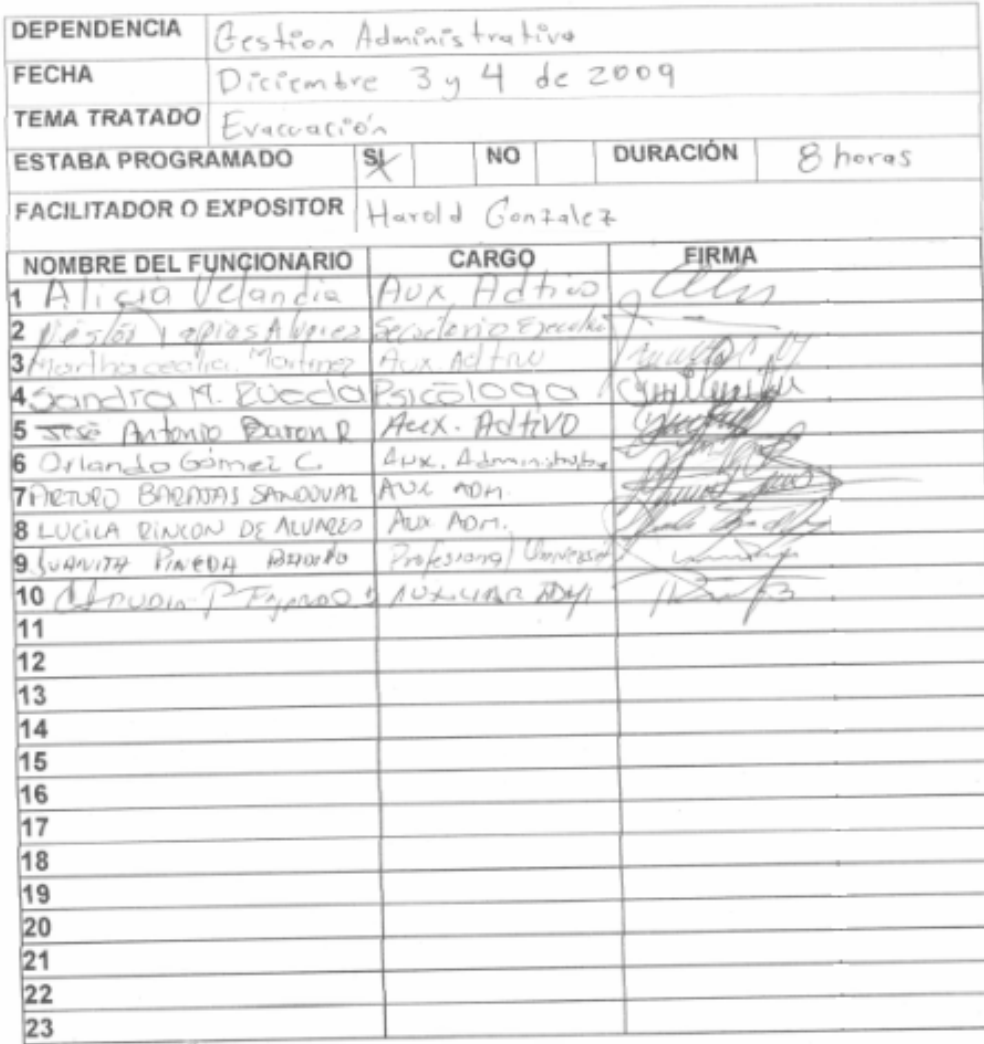 DEPENDENCIA Gestion Administrativa
FECHA Diciembre 3 y 4 de 2009
TEMA TRATADO Evacuación
ESTABA PROGRAMADO SI X NO DURACIÓN 8 horas
FACILITADOR O EXPOSITOR Harold Gonzalez
NOMBRE DEL FUNCIONARIO CARGO FIRMA
1 Alicia Velandia Aux Adtivo
2 Néstor Tapias Secretario
3 Martha cecilia Martinez Aux. Adtivo
4 Sandra M. Rueda Psicóloga
5 José Antonio Baron R Aux. Adtivo
6 Orlando Gómez C. Aux.
7 ARTURO BARAJAS SANDOVAL AUX ADM.
8 LUCILA RINCON DE ALVAREZ Aux ADM.
9 JUANITA PINEDA Profesional
10 AUXILIAR
11
12
13
14
15
16
17
18
19
20
21
22
23